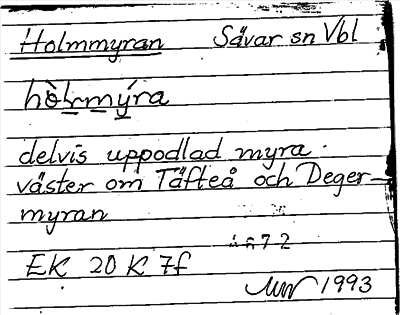 Holmmyran Sävar sn Vbl
hòlmýra
delvis uppodlad myra
väster om Täfteå och Deger-
myran
4672
EK 20 K 7f
1993